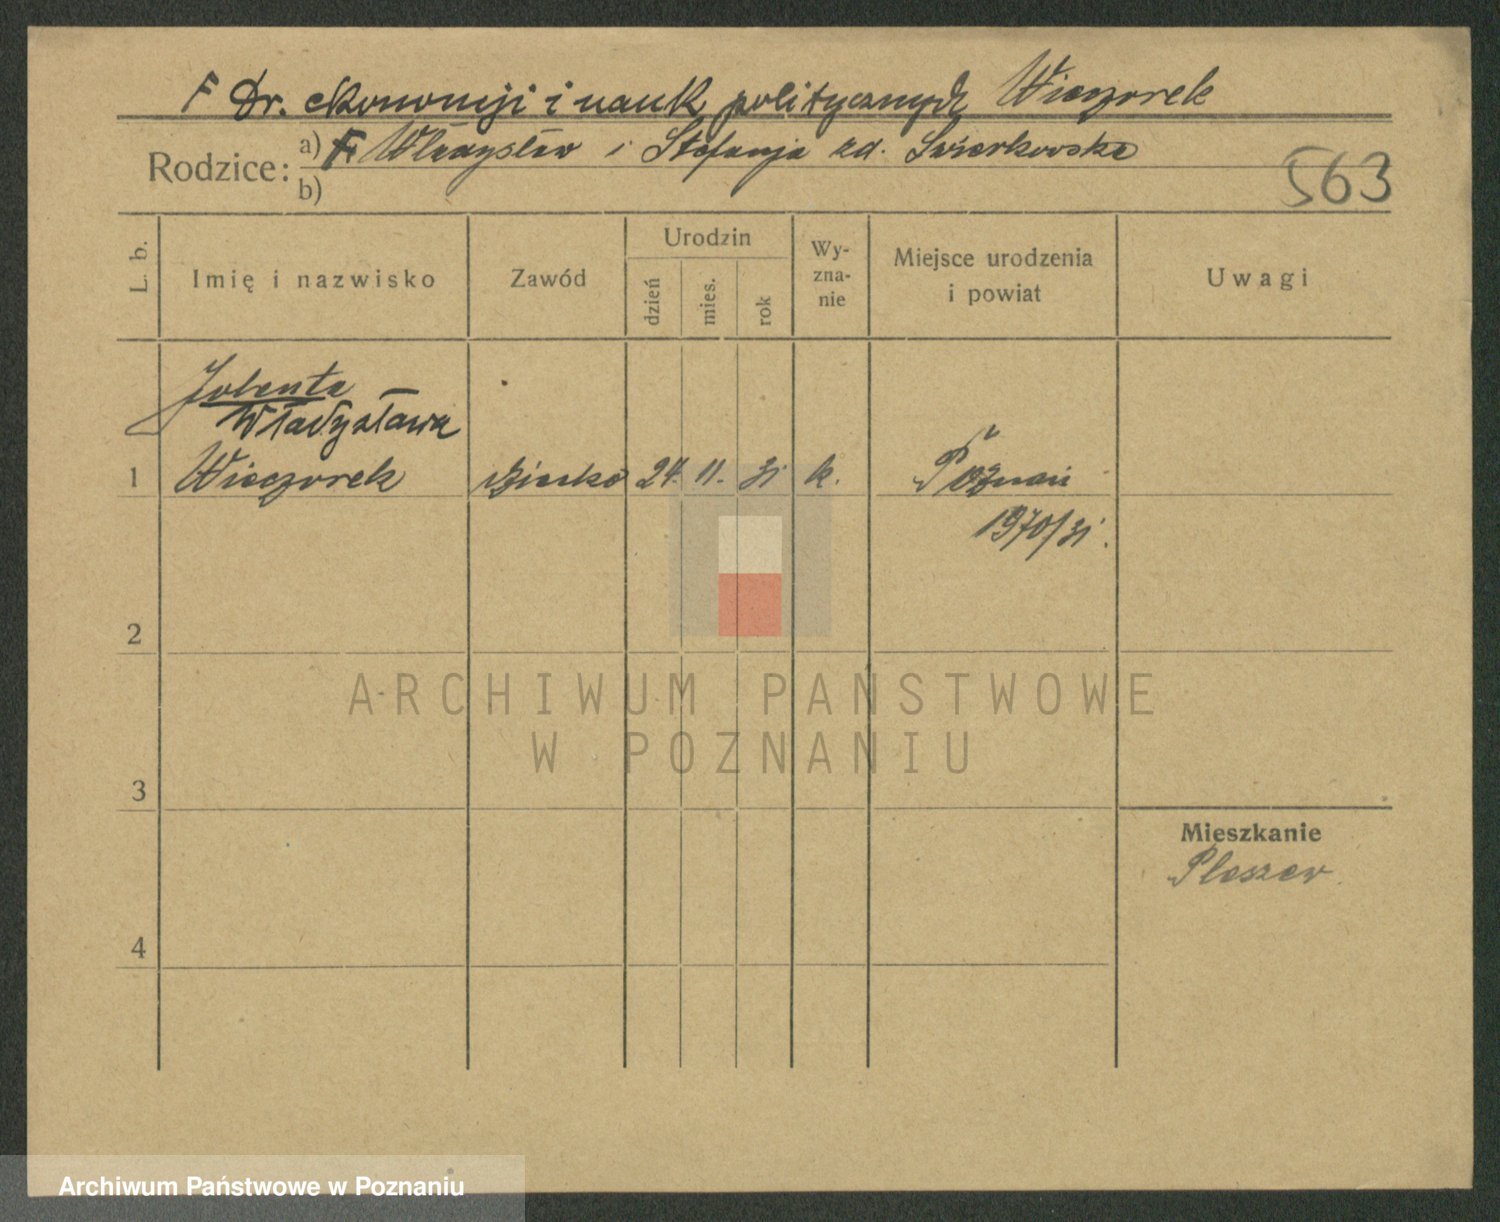 F Dr. ekonomji i nauk politycznych Wieczorek
Rodzice: a) F Władysław i Stefanja zd. Świerkowska
b)
563
L. b. Imię i nazwisko Zawód Urodzin dzień mies. rok Wy-zna-nie Miejsce urodzenia i powiat Uwagi
Jolenta
Władysława
1 Wieczorek dziecko 24. 11. 31 k. Poznań
1970/31.
2
3
4
Mieszkanie
Pleszew
ARCHIWUM PAŃSTWOWE
W POZNANIU
Archiwum Państwowe w Poznaniu